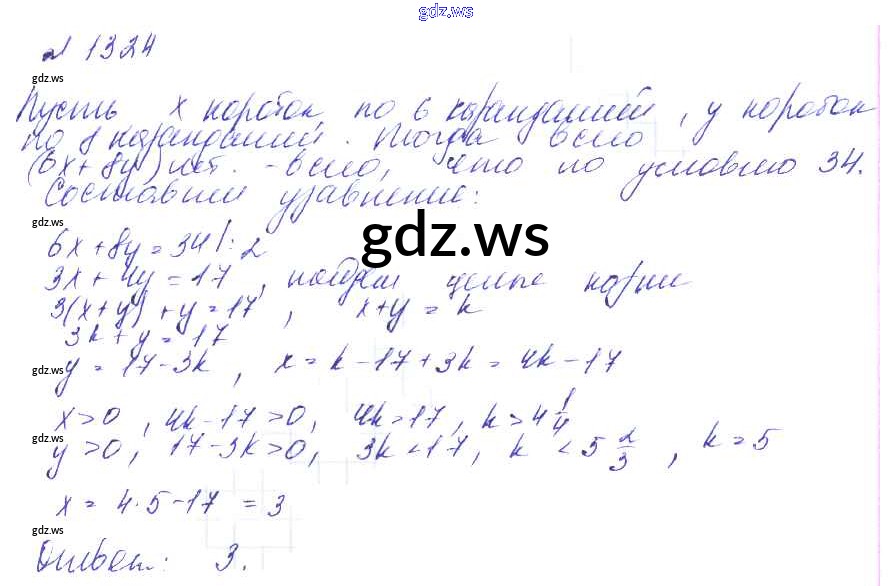 gdz.ws
№ 1324
gdz.ws
Пусть x коробок по 6 карандашей, y коробок
по 8 карандашей. Тогда всего
(6x + 8y) шт. - всего, что по условию 34.
Составим уравнение:
gdz.ws
6x + 8y = 34 | : 2
gdz.ws
3x + 4y = 17, найдем целые корни
gdz.ws
3(x + y) + y = 17, x + y = k
3k + y = 17
gdz.ws
y = 17 - 3k, x = k - 17 + 3k = 4k - 17
x > 0, 4k - 17 > 0, 4k > 17, k > 4 1/4
gdz.ws
y > 0, 17 - 3k > 0, 3k < 17, k < 5 2/3, k = 5
x = 4 · 5 - 17 = 3
gdz.ws
Ответ: 3.